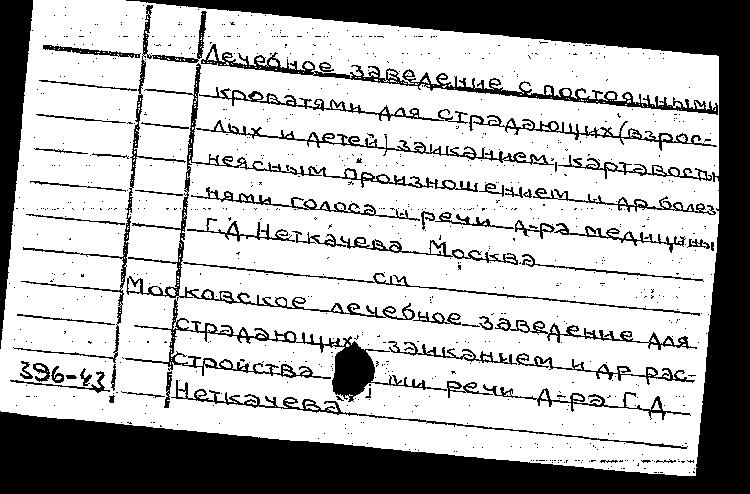 Лечебное заведение с постоянными
кроватями для страдающих (взрос-
лых и детей) заиканием, картавостью
неясным произношением и др. болез-
нями голоса и речи д-ра медицины
Г.Д. Неткачева Москва
см
Московское лечебное заведение для
страдающих заиканием и др рас-
стройства ми речи д-ра Г.Д
396-43
Неткачева